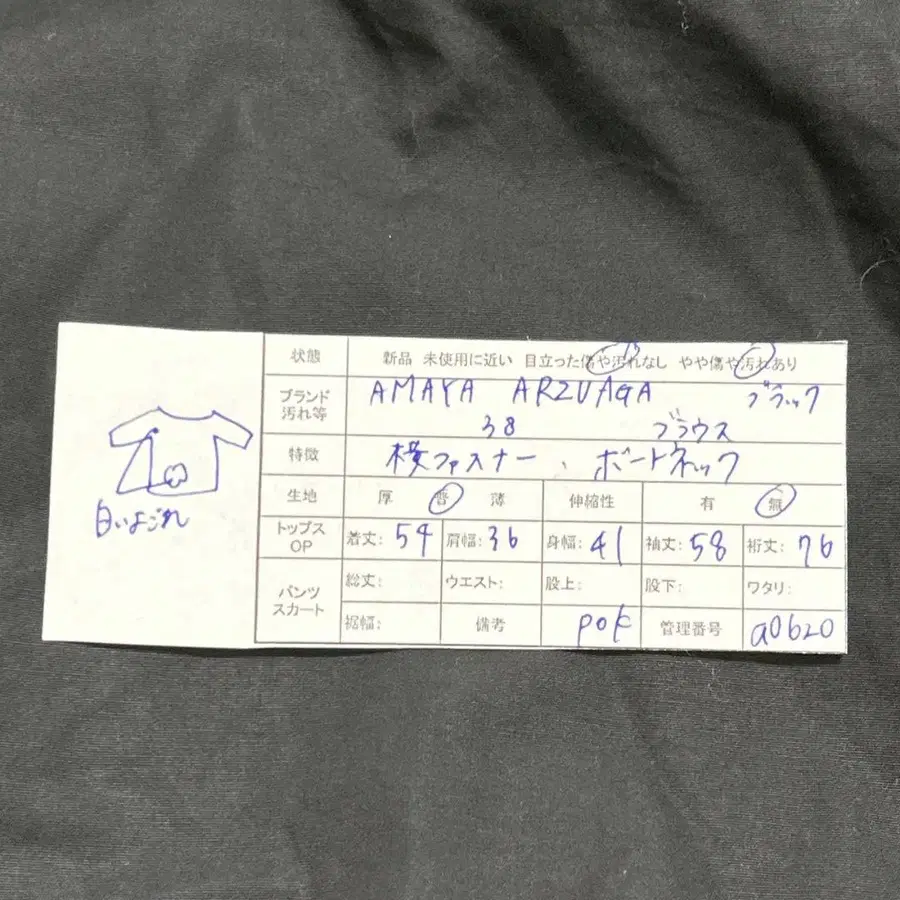 状態 新品 未使用に近い 目立った傷や汚れなし やや傷や汚れあり
ブランド 汚れ等 AMAYA ARZUAGA ブラック
38 ブラウス
特徴 横ファスナー、ボートネック
生地 厚 普 薄 伸縮性 有 無
トップス OP 着丈: 54 肩幅: 36 身幅: 41 袖丈: 58 裄丈: 76
パンツ スカート 総丈: ウエスト: 股上: 股下: ワタリ:
裾幅: 備考 pok 管理番号 a0620
白いよごれ